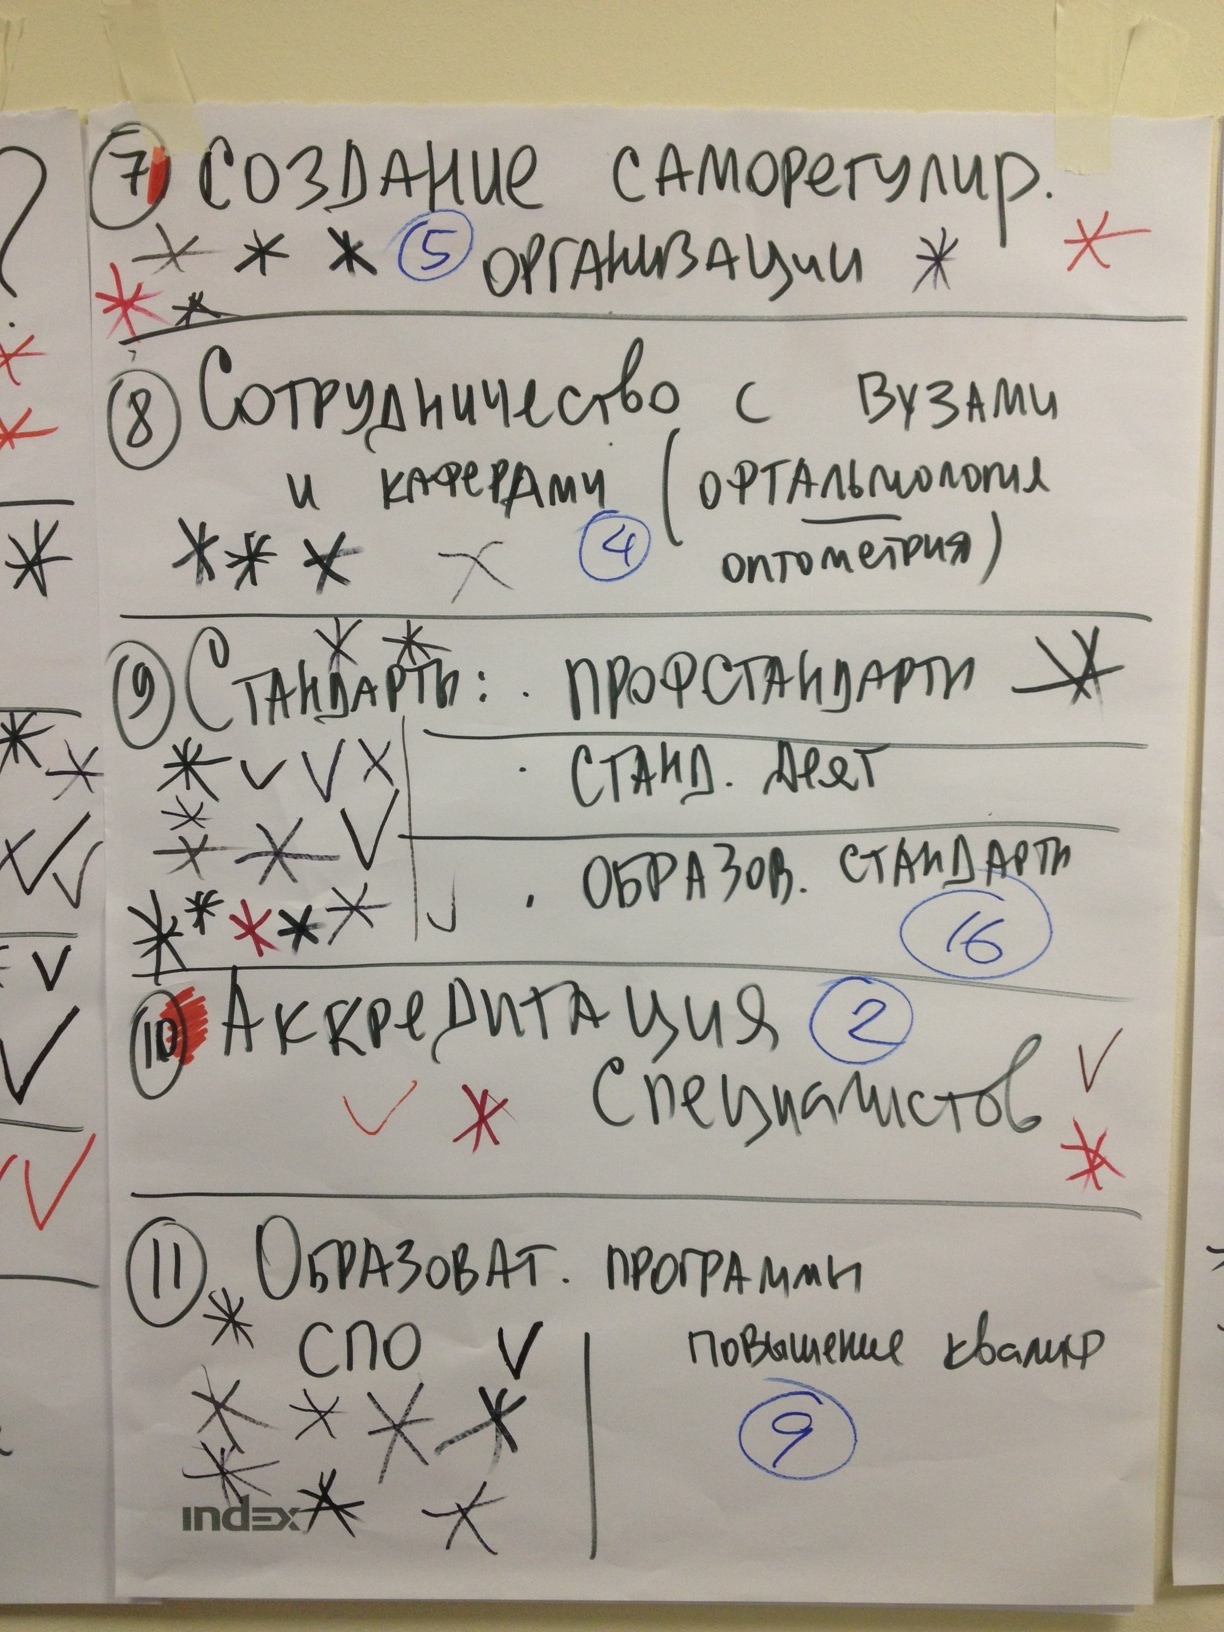 7 Создание саморегулир.
5 организации
8 Сотрудничество с вузами
и кафедрами (офтальмология
4 оптометрия)
9 Стандарты: · профстандарты
· станд. деят
· образов. стандарты
16
10 Аккредитация 2
специалистов
11 Образоват. программы
СПО повышение квалиф
9
index